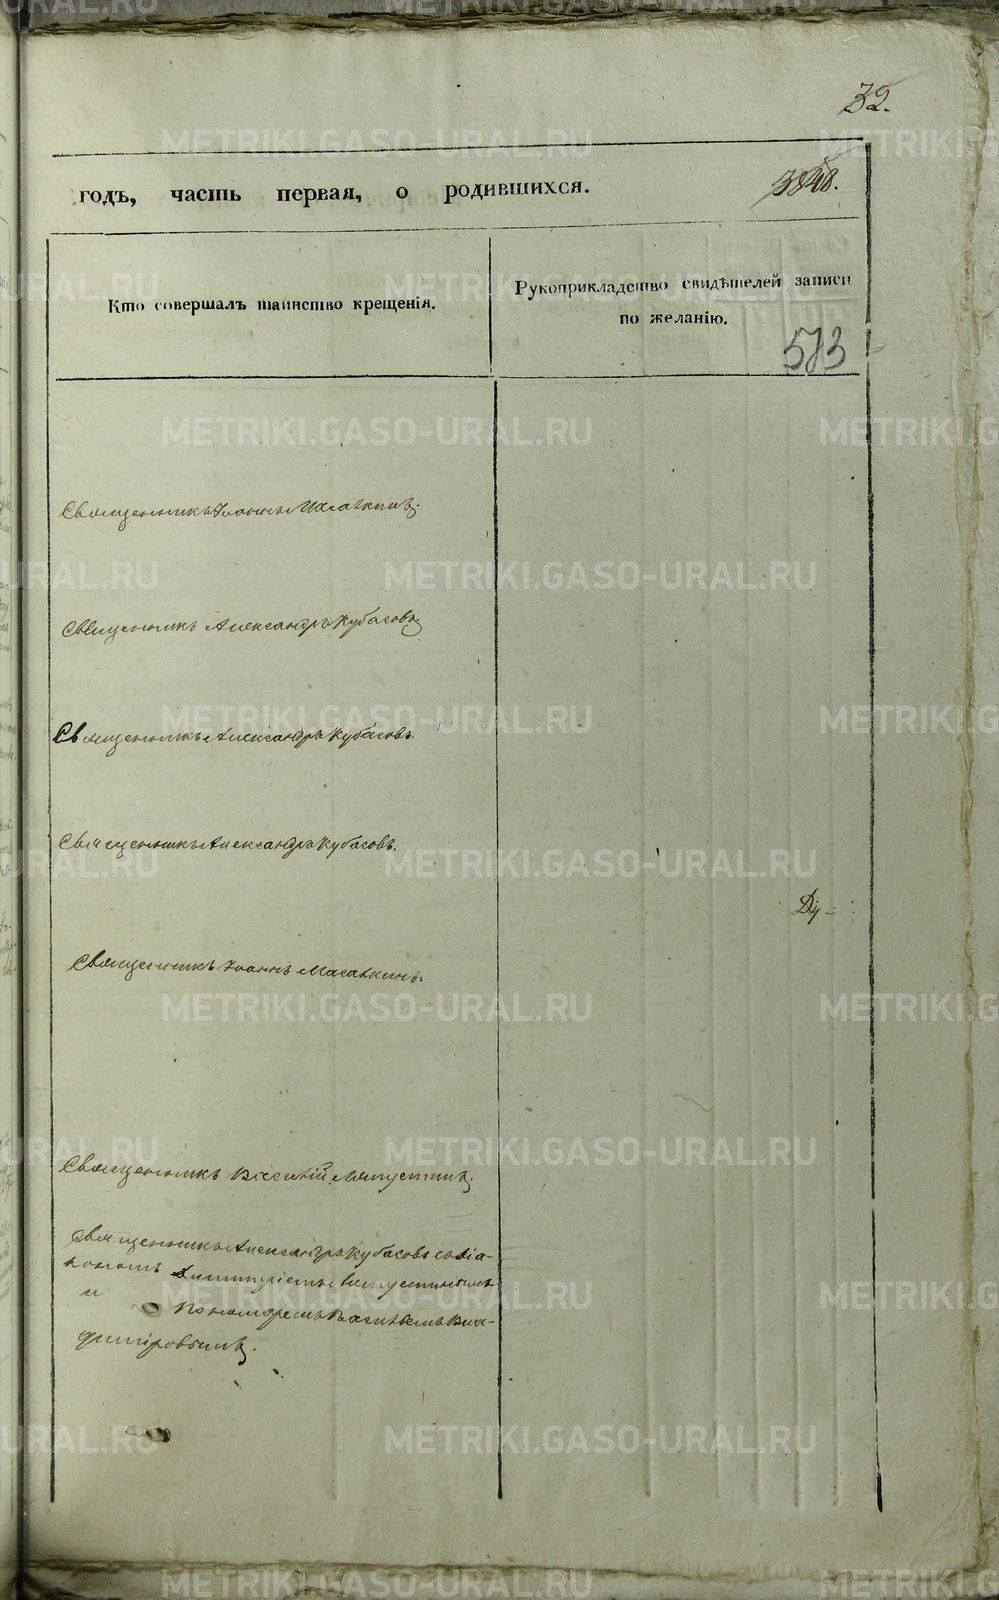 32.
годъ, часть первая, о родившихся.
Кто совершалъ таинство крещенія.
Рукоприкладство свидѣтелей записи
по желанію.
573
Священникъ Іоаннъ Масалкинъ.
Священникъ Александръ Кубасовъ.
Священникъ Александръ Кубасовъ.
Священникъ Александръ Кубасовъ.
Священникъ Іоаннъ Масалкинъ.
Священникъ Василій Ляпустинъ.
Священникъ Александръ Кубасовъ съ діа-
кономъ Димитріемъ Ляпустинымъ
и
Пономаремъ Васильемъ Вла-
диміровымъ.
METRIKI.GASO-URAL.RU